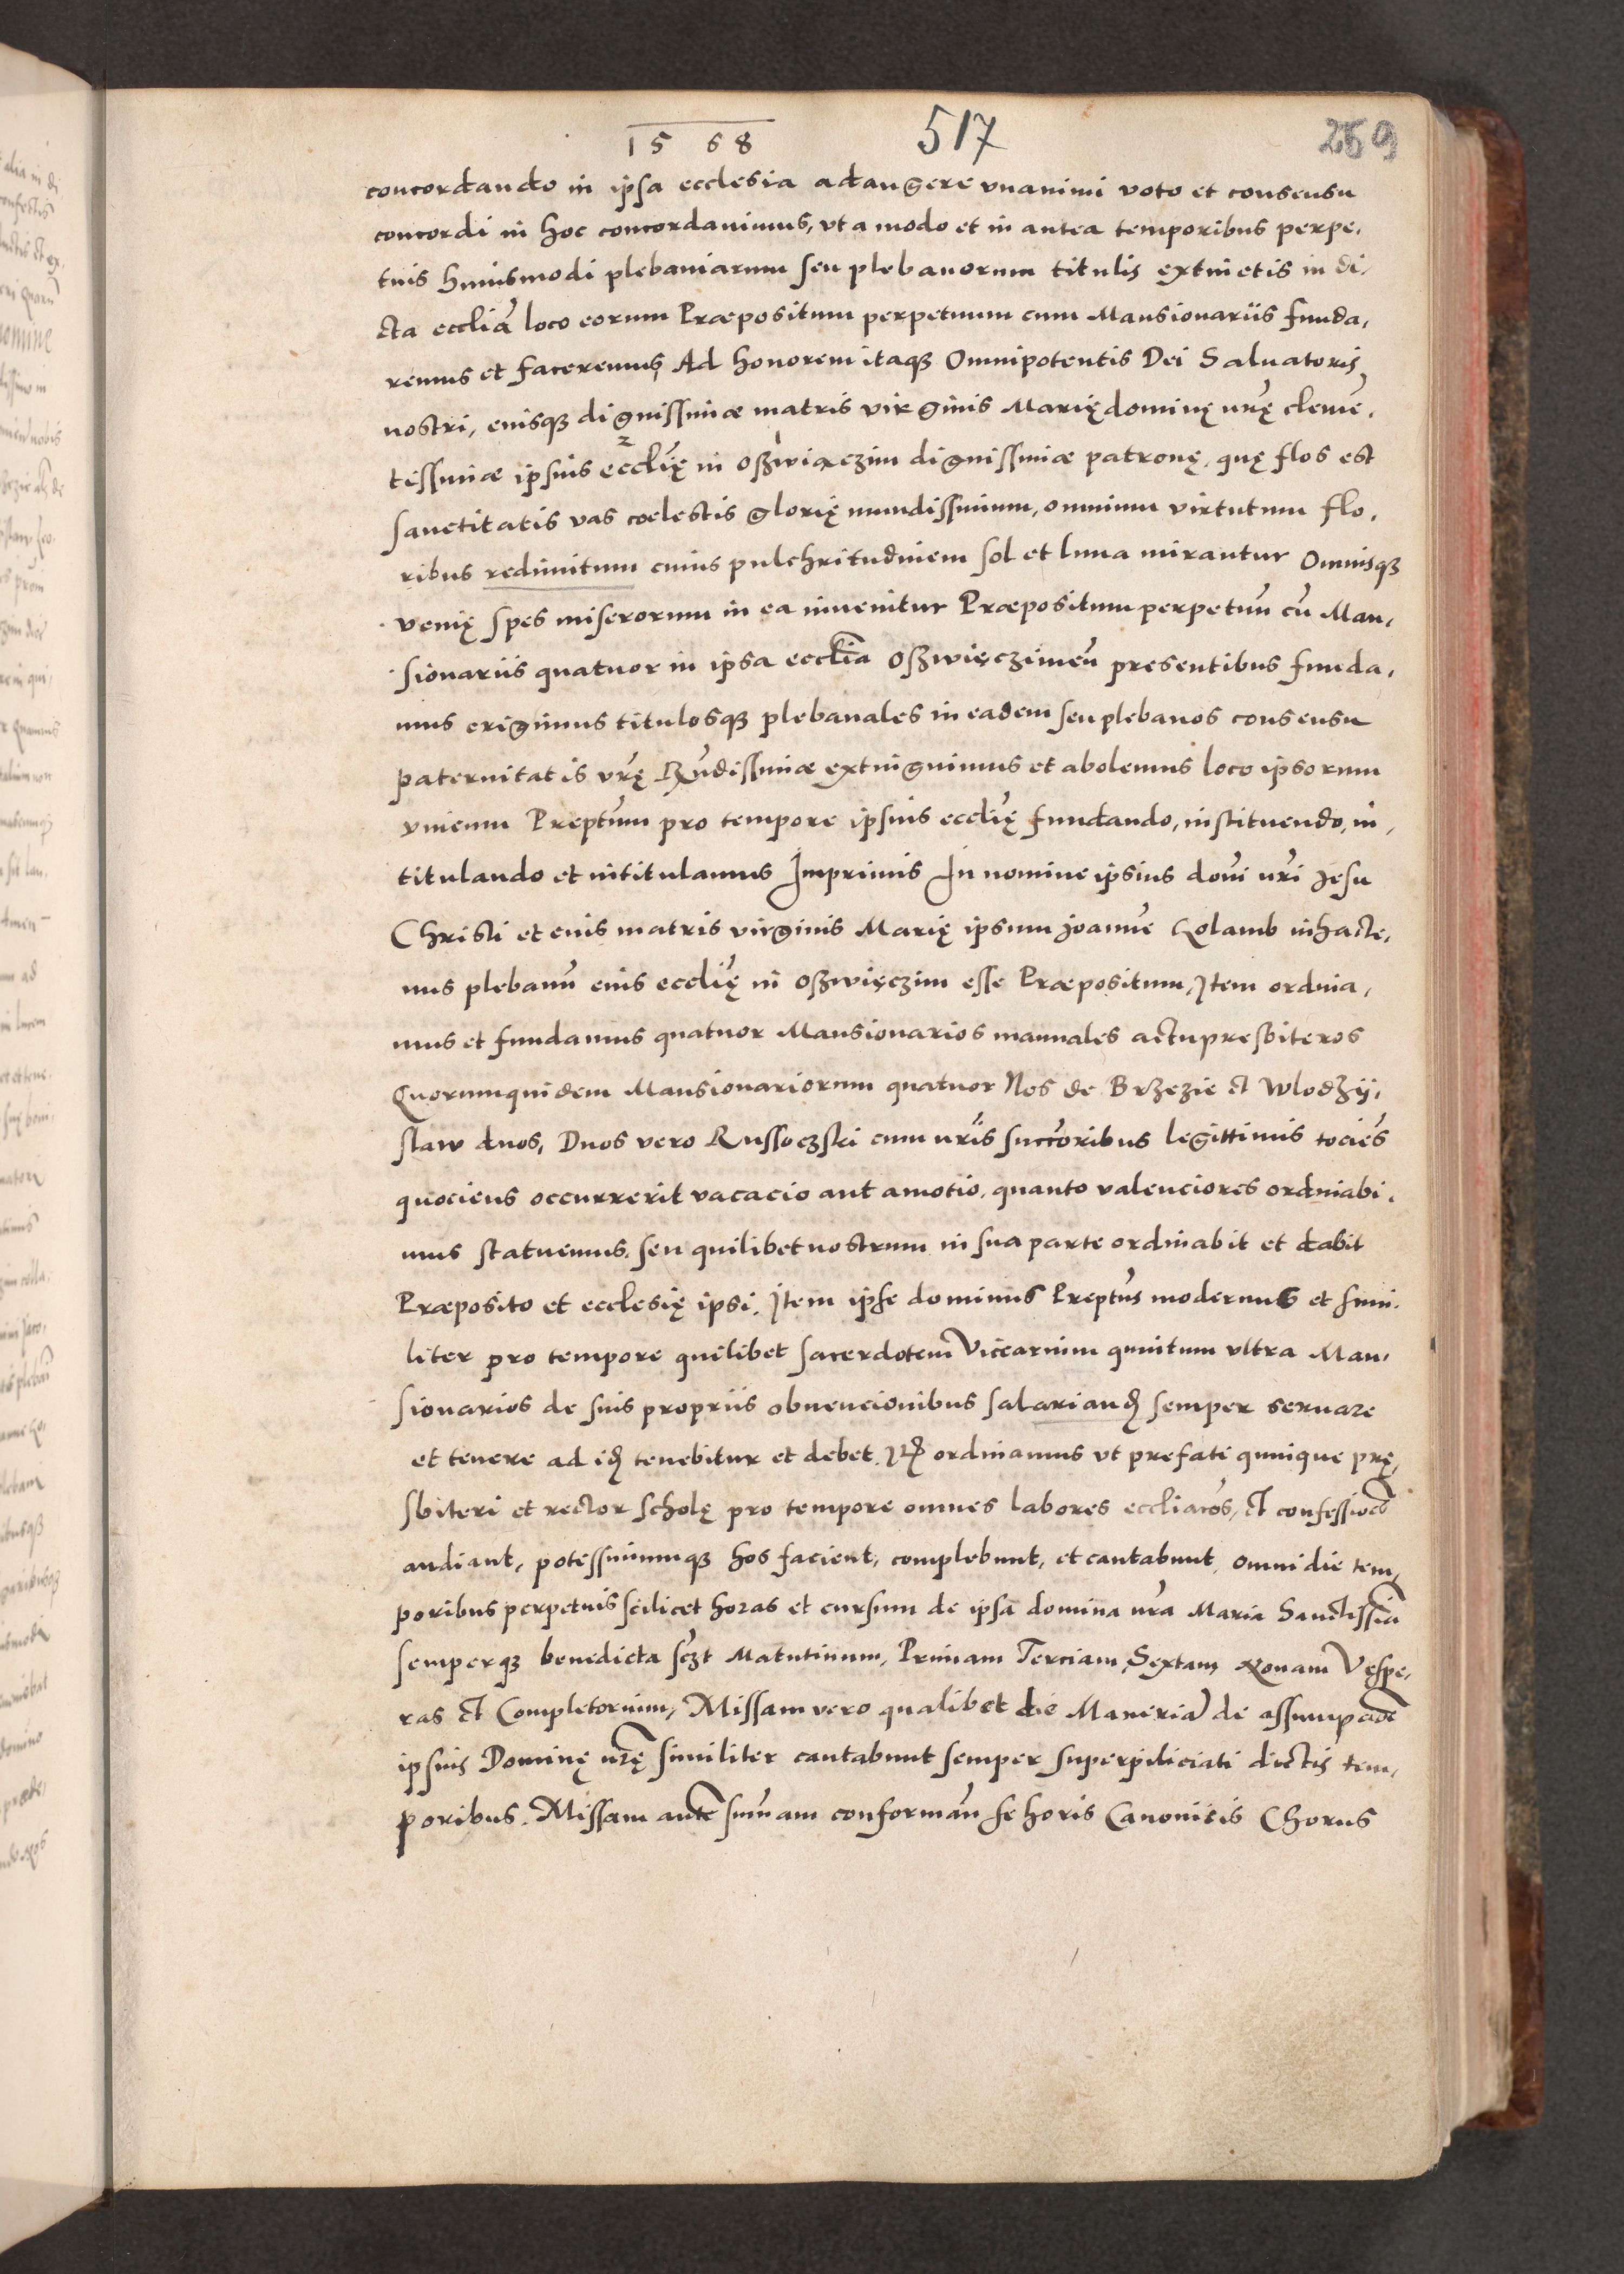 1568 517 259
concordando in ipsa ecclesia adaugere vnanimi voto et consensu
concordi in hoc concordauimus, vt a modo et in antea temporibus perpe,
tuis huiusmodi plebaniarum seu plebanorum titulis extinctis in di,
cta eccliã loco eorum Præpositum perpetuum cum Mansionariis funda,
remus et faceremus, Ad honorem itaqꝫ Omnipotentis Dei Saluatoris
nostri, eiusqꝫ dignissimæ matris virginis Marię dominę nr̃ę clemẽ,
tissimæ ipsius ecclię̃ in Oßwiączim dignissimæ patronę, quę flos est
sanctitatis vas coelestis glorię mundissimum, omnium virtutum flo,
ribus redimitum cuius pulchritudinem sol et luna mirantur Omnisqꝫ
venię spes miserorum in ea inuenitur Præpositum perpetuũ cũ Man,
sionariis quatuor in ipsa ecclĩa Oßwięczimeñ presentibus funda,
mus erigimus titulosqꝫ plebanales in eadem seu plebanos consensu
paternitatis vr̃ę Rñdissimæ extinguimus et abolemus loco ipsorum
vnicum Preptũm pro tempore ipsius ecclię̃ fundando, instituendo, in,
titulando et intitulamus Imprimis In nomine ipsius dom̃i nr̃i Jesu
Christi et eius matris virginis Marię ipsum Joannẽ Kolamb inhacte,
nus plebanũ eius ecclię̃ in Oßwięczim esse Præpositum, Item ordina,
mus et fundamus quatuor Mansionarios manuales actu presbiteros
Quorumquidem Mansionariorum quatuor Nos de Brzezie et Wlodzij,
slaw duos, Duos vero Russoczski cum nr̃is succr̃oribus legittimis tociẽs
quociens occurrerit vacacio aut amotio, quanto valenciores ordinabi,
mus statuemus, seu quilibet nostrum in sua parte ordinabit et dabit
Præposito et ecclesię ipsi. Item ipse dominus Preptũs modernus et simi,
liter pro tempore quilibet sacerdotem Viccarium quintum vltra Man,
sionarios de suis propriis obuencionibus salariand̃ semper seruare
et tenere ad id̃ tenebitur et debet. It̃ ordinamus vt prefati quinque prę,
sbiteri et rector scholę pro tempore omnes labores eccliãcos, et confessiões
audiant, potissimumqꝫ hos facient, complebunt, et cantabunt omni die tem,
poribus perpetuis scilicet horas et cursum de ipsa domina nr̃a Maria Sanctissĩa
semperqꝫ benedicta sczt Matutinum, Primam Terciam, Sextam Nonam Vespe,
ras et Completorium, Missam vero qualibet die Maneria de assumpcõe
ipsius Dominę nr̃ę similiter cantabunt semper superpiliciati dictis tem,
poribus. Missam ante sum̃am conformañ se horis Canonicis Chorus